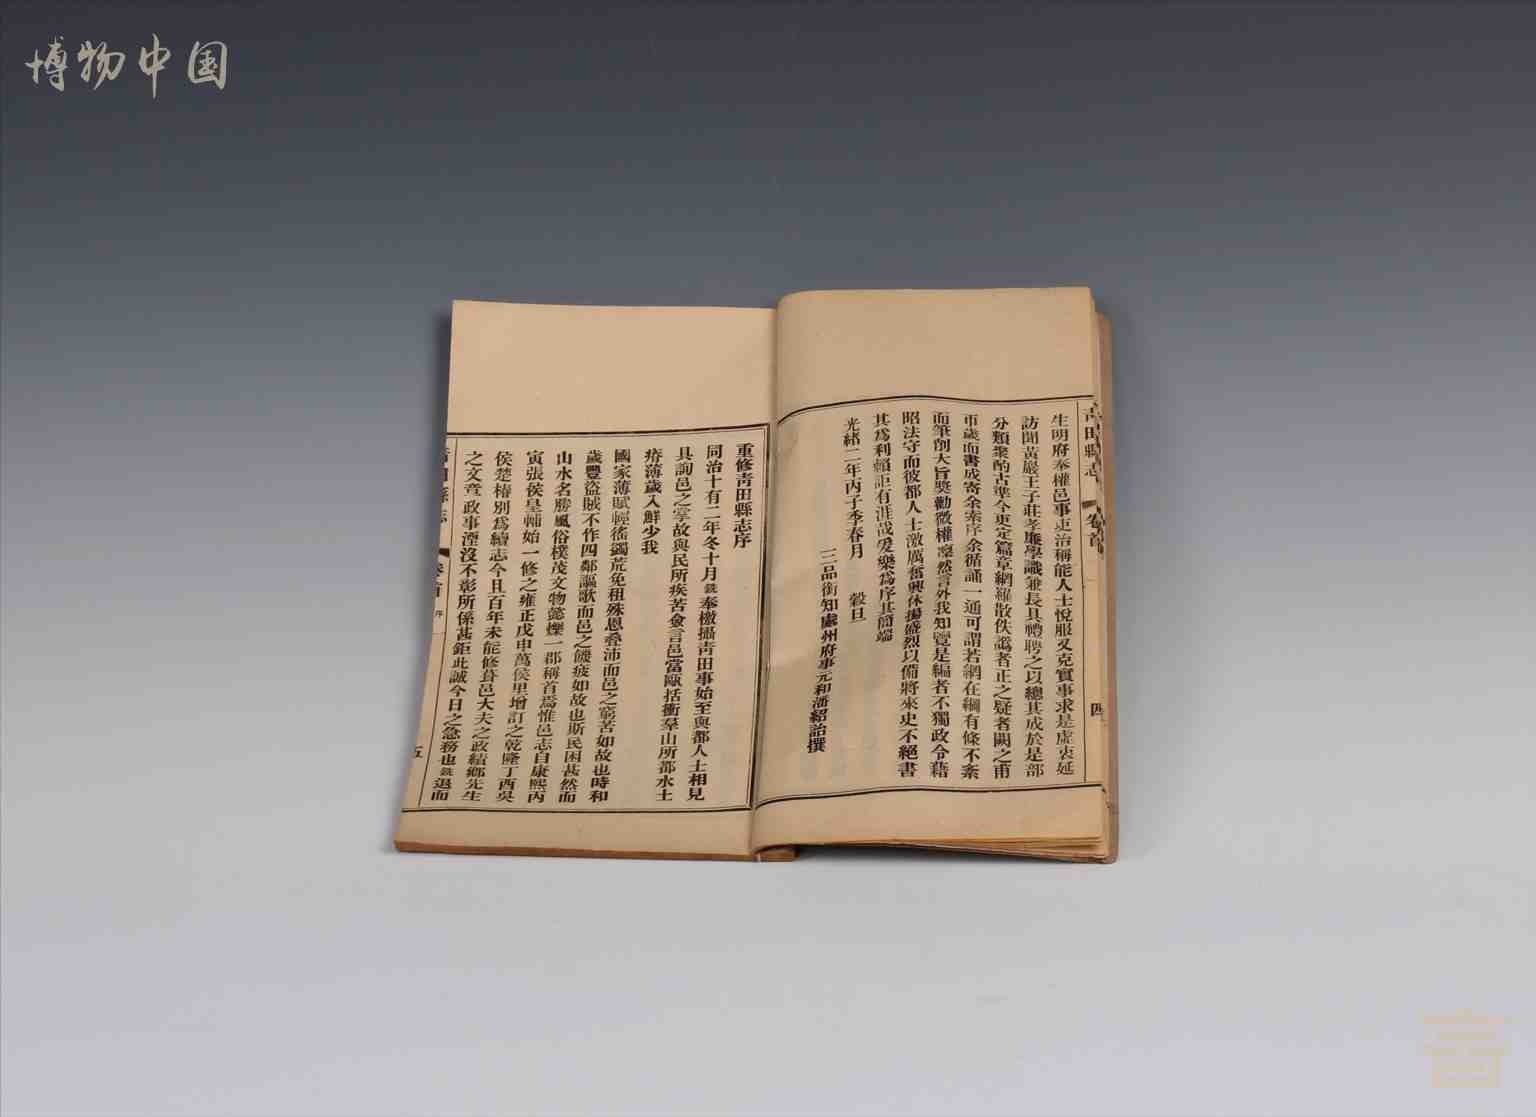 博物中国
青田縣志
卷首
四
生明府奉權邑事吏治稱能人士悅服又克實事求是虛衷延
訪聞黃巖王子莊孝廉學識兼長具禮聘之以總其成於是部
分類聚酌古準今更定篇章網羅散佚譌者正之疑者闕之甫
帀歲而書成寄余索序余循誦一通可謂若網在綱有條不紊
而筆削大旨獎勸微權凜然言外我知覽是編者不獨政令藉
昭法守而彼都人士激厲奮興休揚盛烈以備將來史不絕書
其為利賴詎有涯哉爰樂為序其簡端
光緒二年丙子季春月 穀旦
三品銜知處州府事元和潘紹詒撰
重修青田縣志序
同治十有二年冬十月銑奉檄攝青田事始至與都人士相見
具詢邑之掌故與民所疾苦僉言邑當甌括衝羣山所都水土
瘠薄歲入鮮少我
國家薄賦輕徭蠲荒免租殊恩叠沛而邑之窮苦如故也時和
歲豐盜賊不作四鄰謳歌而邑之饑疲如故也斯民困甚然而
山水名勝風俗樸茂文物懿爍一郡稱首焉惟邑志自康熙丙
寅張侯皇輔始一修之雍正戊申萬侯里增訂之乾隆丁酉吳
侯楚椿別為續志今且百年未能修葺邑大夫之政績鄉先生
之文章政事湮沒不彰所係甚鉅此誠今日之急務也銑退而
青田縣志
卷首
序
五